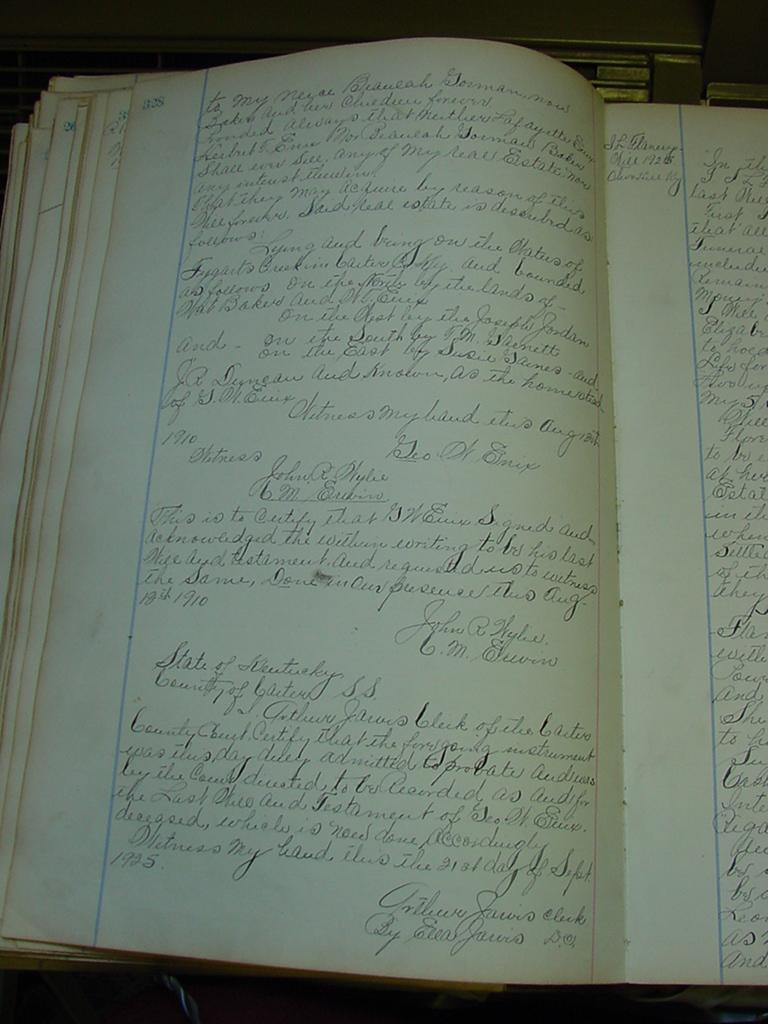 328
to my neice Beaulah Gorman, now
Baker and her Children forever
Provided always that neither Lafayette Enix
Herbert T. Enix Nor Beaulah Gorman Baker
Shall ever sell any of my real Estate, nor
any interest therein
that they may acquire by reason of this
Will forever. Said real estate is described as
follows: Lying and being on the Waters of
Tygarts Creek in Carter Co Ky. and bounded
as follows on the North by the lands of
Wat Baker and W. Enix
On the West by the Joseph Jordan
and - on the South by T. M. Garnett
on the East by Susie Gaines - and
J. R. Duncan and Known, as the homestead
of G. W. Enix
Witness my hand this Aug 13th
1910
Geo W. Enix
Witness
John R. Wylie
C. M. Erwin
This is to Certify that G W Enix Signed and
acknowledged the within writing to be his last
Will and testament and requested us to witness
the Same, Done in Our presense this Aug
13th 1910
John R. Wylie.
C. M. Erwin
State of Kentucky
County of Carter S.S.
I, Arthur Jarvis Clerk of the Carter
County Court Certify that the foregoing instrument
was this day duly admitted to probate and was
by the Court directed, to be Recorded as and for
the Last Will and Testament of Geo. W. Enix.
deceased, which is now done, accordingly
Witness my hand, this the 21st day of Sept.
1925.
Arthur Jarvis clerk
By Ella Jarvis D.C.
J L Flanery
Will 1925
In th
I J L F
Last Will
First
that all
Funeral
include
Remain
Money
I Will
Elizabe
to hold
Life for
two
My
Will
Flore
to be
at her
Estat
in th
when
Settle
of th
they
Flan
with
and
She
to h
Inte
be
be
Leon
as
and